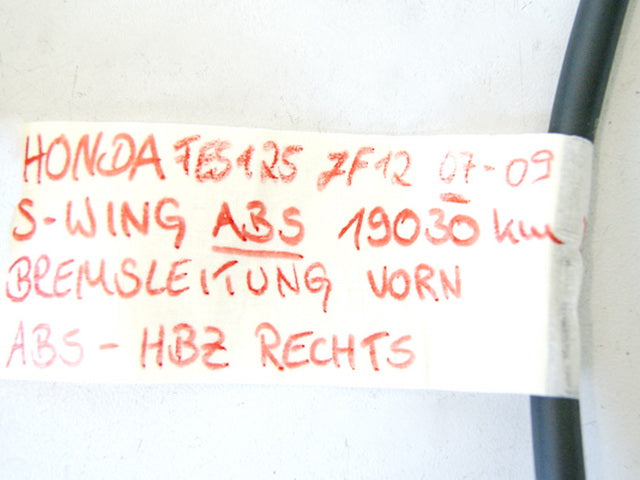 HONDA FES125 JF12 07-09
S-WING ABS 19030 km
BREMSLEITUNG VORN
ABS - HBZ RECHTS